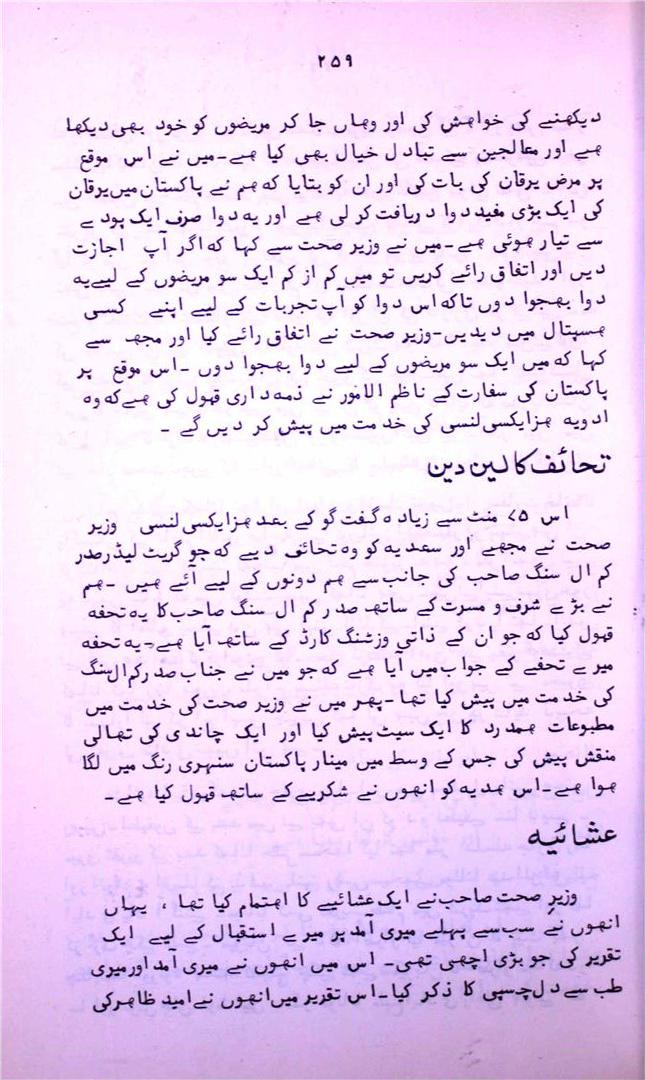 ۲۵۹
دیکھنے کی خواہش کی اور وہاں جا کر مریضوں کو خود بھی دیکھا
ہے اور معالجین سے تبادل خیال بھی کیا ہے۔میں نے اس موقع
پر مرض یرقان کی بات کی اور ان کو بتایا کہ ہم نے پاکستان میں یرقان
کی ایک بڑی مفید دوا دریافت کر لی ہے اور یہ دوا صرف ایک پودے
سے تیار ہوئی ہے۔میں نے وزیر صحت سے کہا کہ اگر آپ اجازت
دیں اور اتفاق رائے کریں تو میں کم از کم ایک سو مریضوں کے لیے یہ
دوا بھجوا دوں تاکہ اس دوا کو آپ تجربات کے لیے اپنے کسی
ہسپتال میں دیدیں۔وزیر صحت نے اتفاق رائے کیا اور مجھ سے
کہا کہ میں ایک سو مریضوں کے لیے دوا بھجوا دوں ۔اس موقع پر
پاکستان کی سفارت کے ناظم الامور نے ذمہ داری قبول کی ہے کہ وہ
ادویہ ہزایکسی لنسی کی خدمت میں پیش کر دیں گے ۔
تحائف کا لین دین
اس ۷۵ منٹ سے زیادہ گفت گو کے بعد ہزایکسی لنسی وزیر
صحت نے مجھے اور سعدیہ کو وہ تحائف دیے کہ جو گریٹ لیڈر صدر
کم ال سنگ صاحب کی جانب سے ہم دونوں کے لیے آئے ہیں ۔ہم
نے بڑے شرف و مسرت کے ساتھ صدر کم ال سنگ صاحب کا یہ تحفہ
قبول کیا کہ جو ان کے ذاتی وزٹنگ کارڈ کے ساتھ آیا ہے۔یہ تحفہ
میرے تحفے کے جواب میں آیا ہے کہ جو میں نے جناب صدر کم ال سنگ
کی خدمت میں پیش کیا تھا۔پھر میں نے وزیر صحت کی خدمت میں
مطبوعات ہمدرد کا ایک سیٹ پیش کیا اور ایک چاندی کی تھالی
منقش پیش کی جس کے وسط میں مینار پاکستان سنہری رنگ میں لگا
ہوا ہے۔اس ہدیہ کو انھوں نے شکریے کے ساتھ قبول کیا ہے۔
عشائیہ
وزیر صحت صاحب نے ایک عشائیے کا اہتمام کیا تھا ، یہاں
انھوں نے سب سے پہلے میری آمد پر میرے استقبال کے لیے ایک
تقریر کی جو بڑی اچھی تھی۔ اس میں انھوں نے میری آمد اور میری
طب سے دل چسپی کا ذکر کیا۔اس تقریر میں انھوں نے امید ظاہر کی